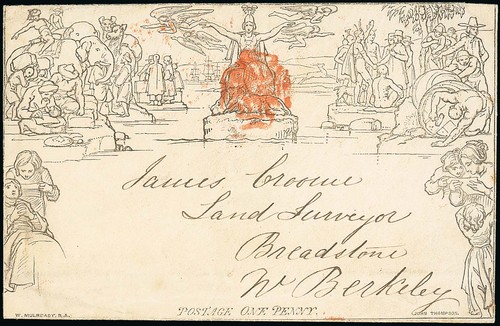 James Croome
Land Surveyor
Breadstone
Nr Berkeley
POSTAGE ONE PENNY.
W. MULREADY. R.A.
JOHN THOMPSON.